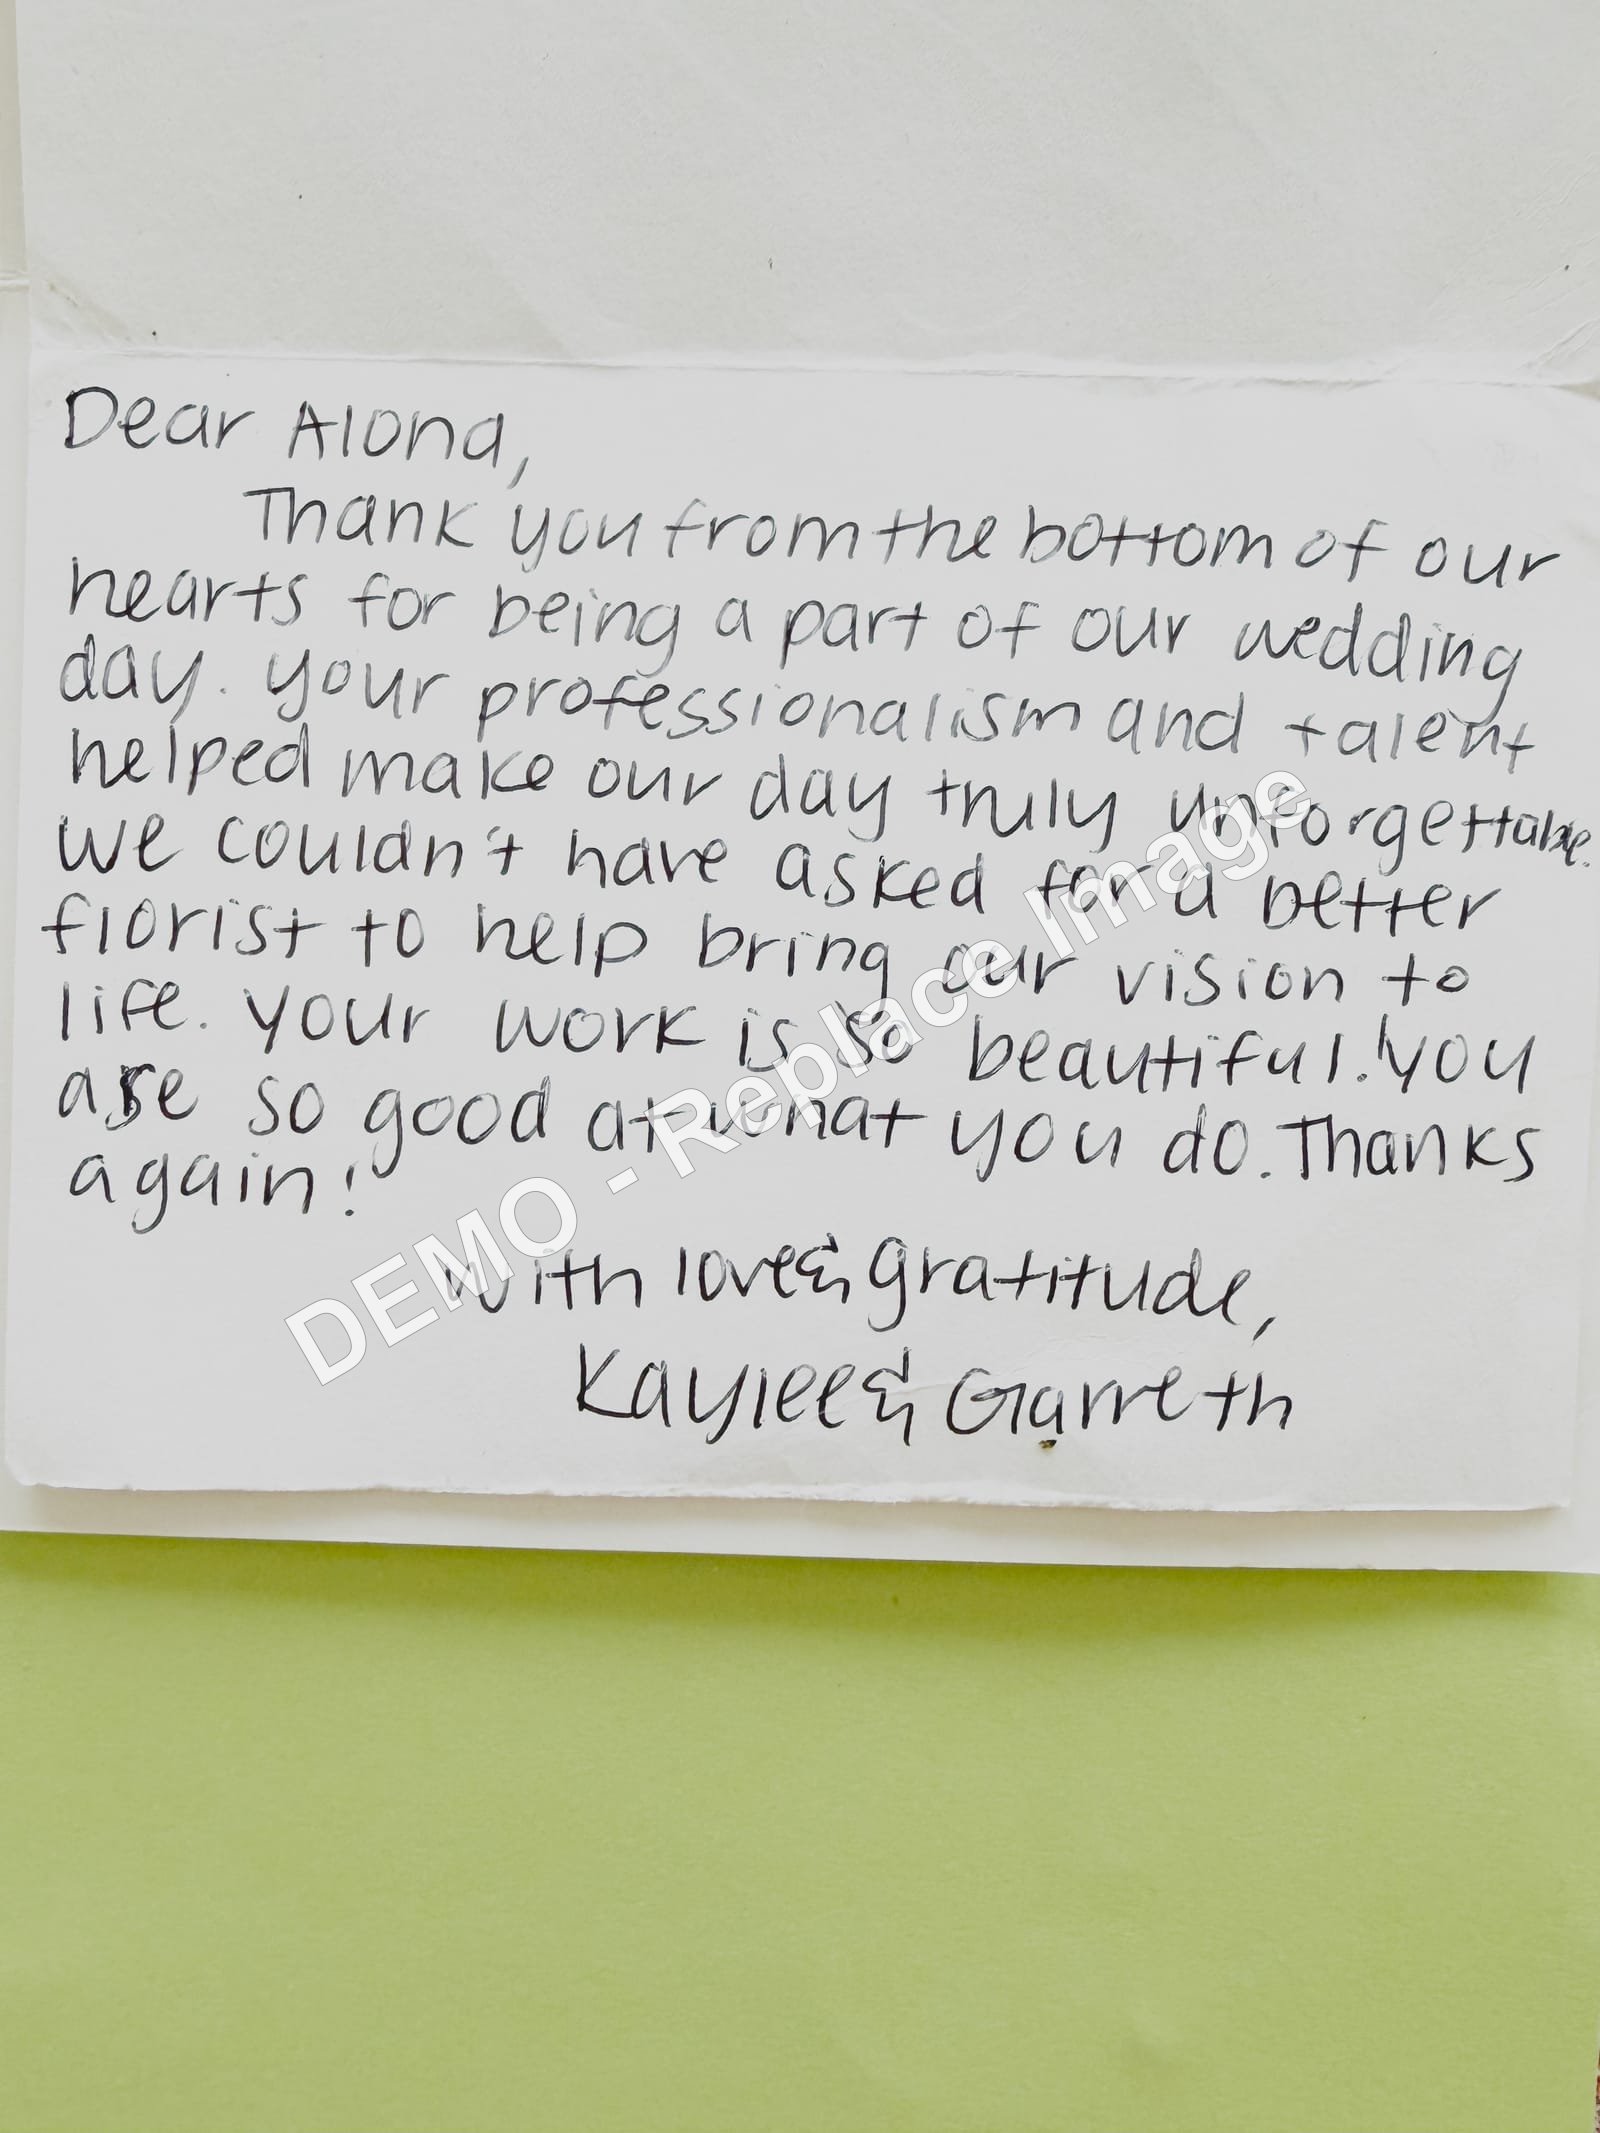 Dear Alona,
Thank you from the bottom of our
hearts for being a part of our wedding
day. Your professionalism and talent
helped make our day truly unforgettable.
We couldn't have asked for a better
florist to help bring our vision to
life. Your work is so beautiful! You
are so good at what you do. Thanks
again!
With love & gratitude,
Kaylee & Garreth
DEMO - Replace Image